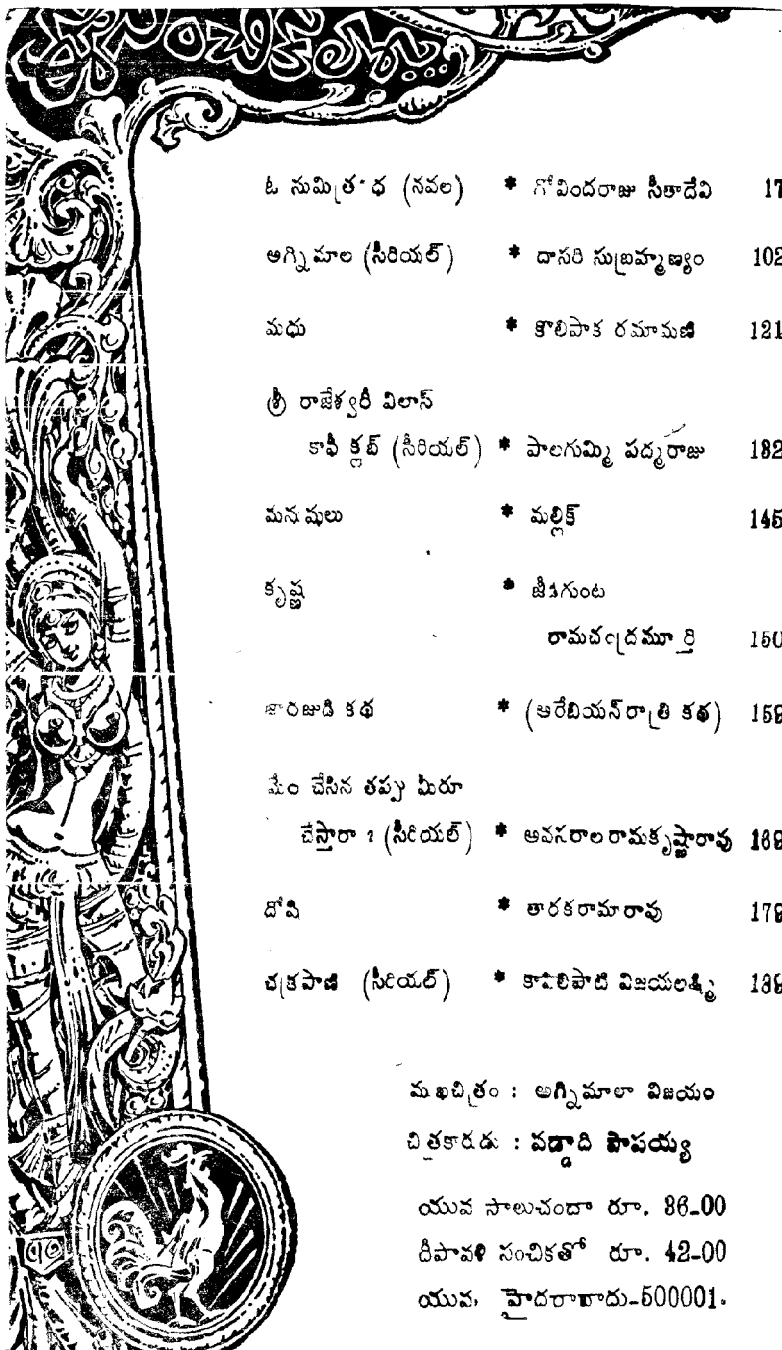 ఈ సంచికలో...
ఓ సుమిత్ర కథ (నవల) * గోవిందరాజు సీతాదేవి 17
అగ్నిమాల (సీరియల్) * దాసరి సుబ్రహ్మణ్యం 102
మధు * కొలిపాక రమామణి 121
శ్రీ రాజేశ్వరీ విలాస్
కాఫీ క్లబ్ (సీరియల్) * పాలగుమ్మి పద్మరాజు 132
మనుషులు * మల్లిక్ 145
కృష్ణ * జీడిగుంట
రామచంద్రమూర్తి 150
జారజుడి కథ * (ఆరేబియన్ రాత్రి కథ) 159
మేం చేసిన తప్పు మీరూ
చేస్తారా ? (సీరియల్) * అవసరాల రామకృష్ణారావు 169
దోషి * తారకరామారావు 179
చక్రపాణి (సీరియల్) * కావిలిపాటి విజయలక్ష్మి 189
ముఖచిత్రం : అగ్నిమాలా విజయం
చిత్రకారుడు : వడ్డాది పాపయ్య
యువ సాలుచందా రూ. 36-00
దీపావళి సంచికతో రూ. 42-00
యువ, హైదరాబాదు-500001.